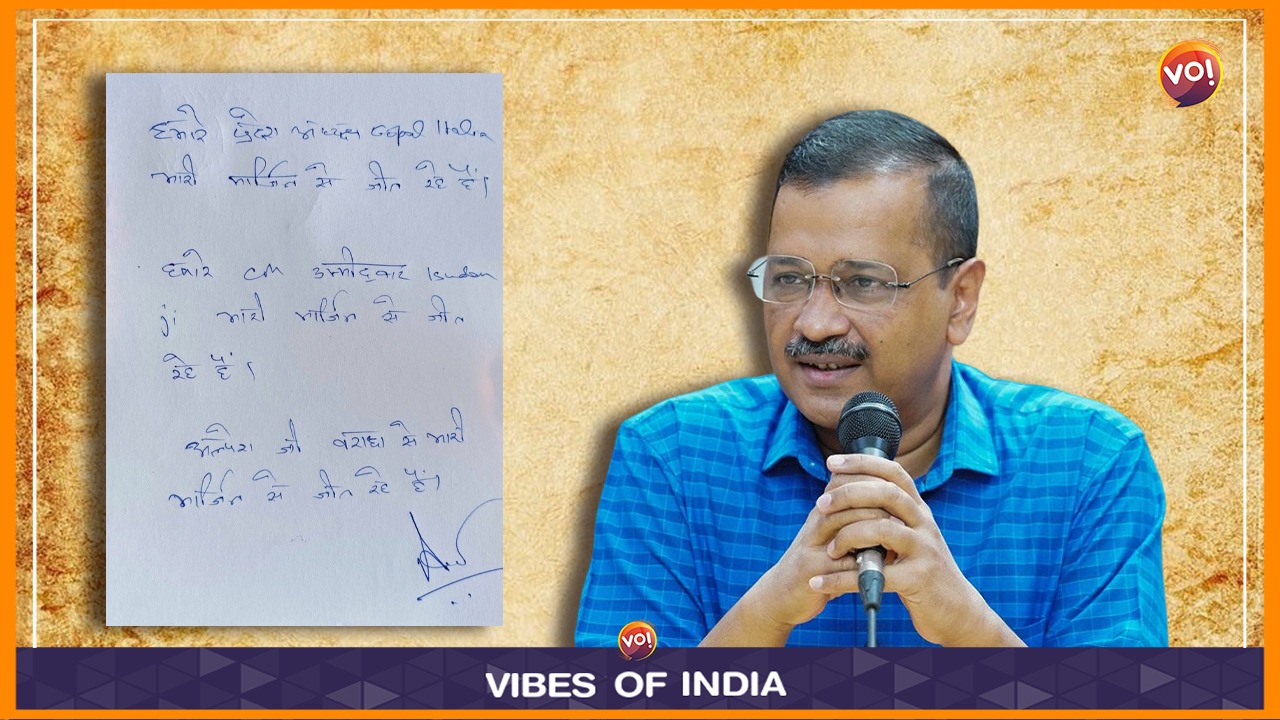 VO!
हमारे प्रदेश अध्यक्ष Gopal Italia
भारी मार्जिन से जीत रहे हैं।
हमारे CM उम्मीदवार Isudan
ji भारी मार्जिन से जीत
रहे हैं।
अल्पेश जी वराछा से भारी
मार्जिन से जीत रहे हैं।
VO!
VIBES OF INDIA